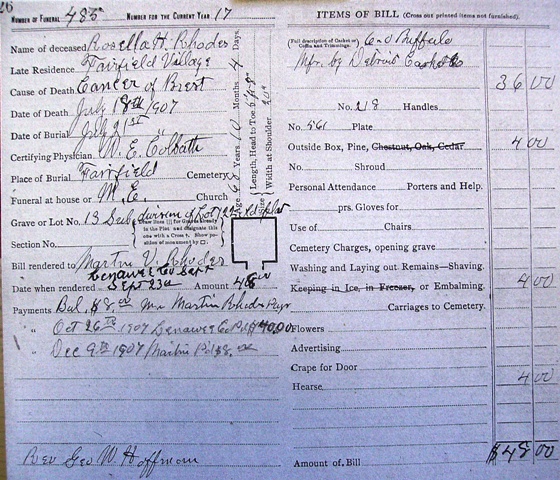 26
NUMBER OF FUNERAL 485 NUMBER FOR THE CURRENT YEAR 17
Name of deceased Rosella H. Rhodes
Late Residence Fairfield Village
Cause of Death Cancer of Brest
Date of Death July 18th 1907
Date of Burial July 21st "
Certifying Physician W. E. Colbath
Place of Burial Fairfield Cemetery
Funeral at house or M. E. Church
Grave or Lot No. 13 division of Lot
Section No.
Draw lines for Graves already in the Plot and designate this one with a Cross †. Show position of monument by □.
Age 68 Years, 10 Months 4 Days.
Size Length, Head to Toe
Width at Shoulder
Bill rendered to Martin V. Rhodes
Lenawee Co Dept
Date when rendered Sept 23d Amount 48.00
Payments Bal. $8.00 Mr Martin Rhodes Pays
" Oct 26th 1907 Lenawee Co Pd $40.00
" Dec 9th 1907 Martin Pd $8.00
Rev Geo W. Hoffman
ITEMS OF BILL (Cross out printed items not furnished).
(Full description of Casket or Coffin and Trimmings.)
Mfr. by Detroit Casket Co 36 00
No. 218 Handles
No. 561 Plate
Outside Box, Pine, Chestnut, Oak, Cedar 4 00
No. Shroud
Personal Attendance Porters and Help.
prs. Gloves for
Use of Chairs
Cemetery Charges, opening grave
Washing and Laying out Remains—Shaving.
Keeping in Ice, in Freezer, or Embalming. 4 00
Carriages to Cemetery.
Flowers
Advertising
Crape for Door
Hearse 4 00
Amount of Bill $48 00